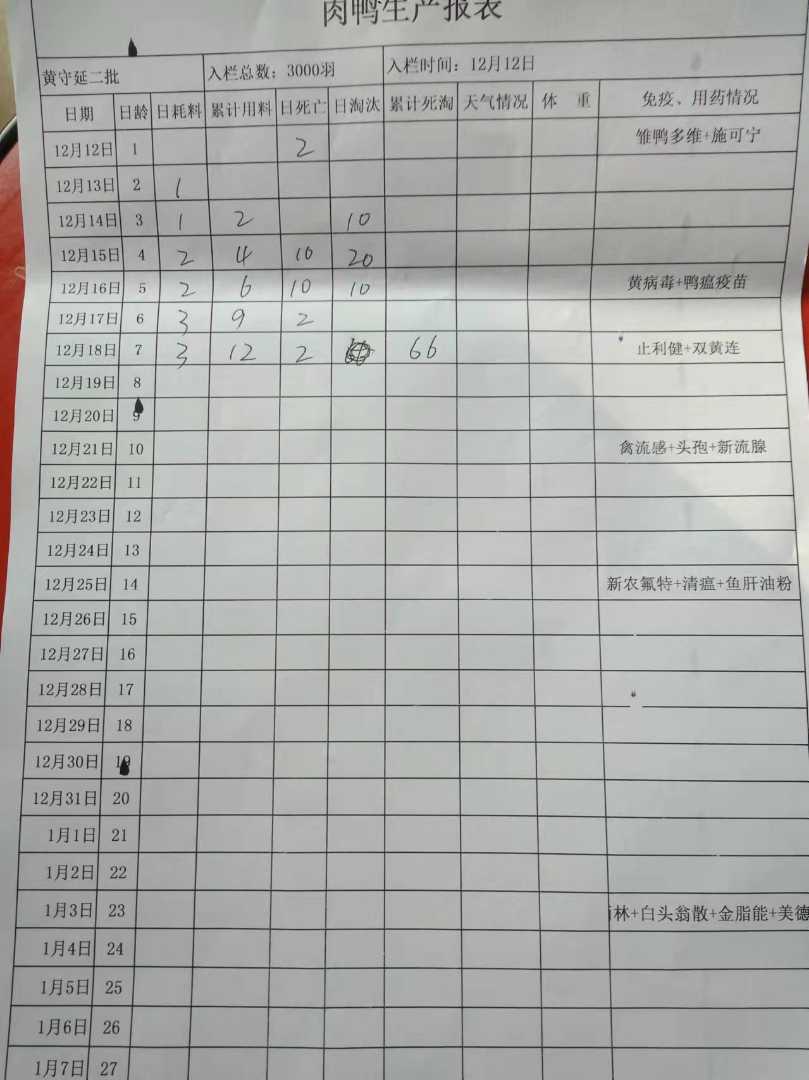 肉鸭生产报表
黄守延二批 入栏总数：3000羽 入栏时间：12月12日
日期 日龄 日耗料 累计用料 日死亡 日淘汰 累计死淘 天气情况 体 重 免疫、用药情况
12月12日 1 2 雏鸭多维+施可宁
12月13日 2 1
12月14日 3 1 2 10
12月15日 4 2 4 10 20
12月16日 5 2 6 10 10 黄病毒+鸭瘟疫苗
12月17日 6 3 9 2
12月18日 7 3 12 2 66 止利健+双黄连
12月19日 8
12月20日 9
12月21日 10 禽流感+头孢+新流腺
12月22日 11
12月23日 12
12月24日 13
12月25日 14 新农氟特+清瘟+鱼肝油粉
12月26日 15
12月27日 16
12月28日 17
12月29日 18
12月30日 19
12月31日 20
1月1日 21
1月2日 22
1月3日 23 林+白头翁散+金脂能+美德
1月4日 24
1月5日 25
1月6日 26
1月7日 27